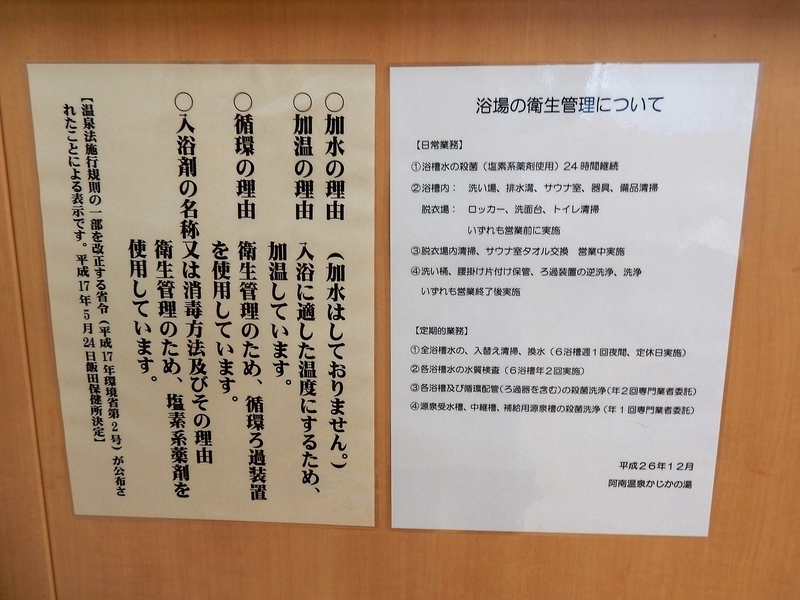 ○加水の理由 (加水はしておりません。)
○加温の理由 入浴に適した温度にするため、
加温しています。
○循環の理由 衛生管理のため、循環ろ過装置
を使用しています。
○入浴剤の名称又は消毒方法及びその理由
衛生管理のため、塩素系薬剤を
使用しています。
【温泉法施行規則の一部を改正する省令(平成17年環境省第2号)が公布さ
れたことによる表示です。平成17年5月24日飯田保健所決定】
浴場の衛生管理について
【日常業務】
①浴槽水の殺菌(塩素系薬剤使用)24時間継続
②浴槽内: 洗い場、排水溝、サウナ室、器具、備品清掃
脱衣場: ロッカー、洗面台、トイレ清掃
いずれも営業前に実施
③脱衣場内清掃、サウナ室タオル交換 営業中実施
④洗い桶、腰掛け片付け保管、ろ過装置の逆洗浄、洗浄
いずれも営業終了後実施
【定期的業務】
①全浴槽水の、入替え清掃、換水(6浴槽週1回夜間、定休日実施)
②各浴槽の水質検査(6浴槽年2回実施)
③各浴槽及び循環配管(ろ過器を含む)の殺菌洗浄(年2回専門業者委託)
④源泉受水槽、中継槽、補給用源泉槽の殺菌洗浄(年1回専門業者委託)
平成26年12月
阿南温泉かじかの湯